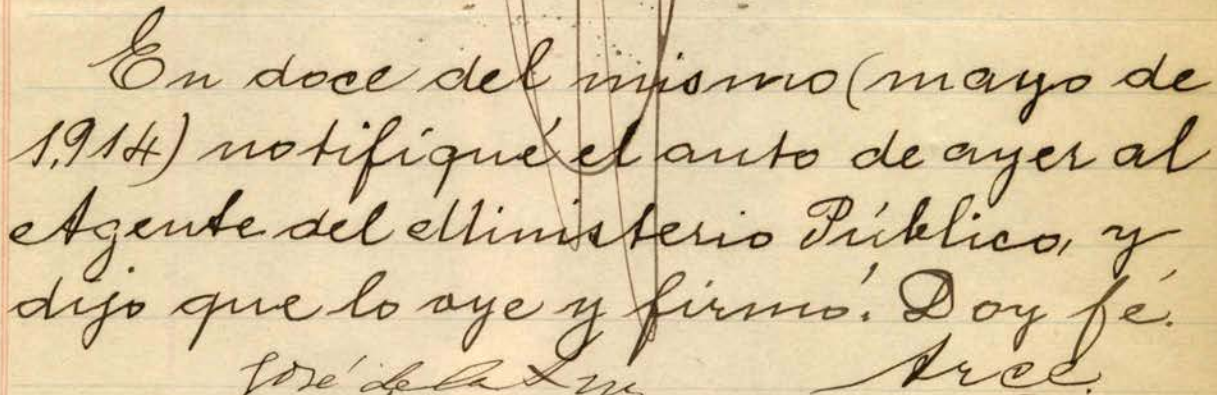 En doce del mismo (mayo de
1,914) notifiqué el auto de ayer al
Agente del Ministerio Público, y
dijo que lo oye y firmó. Doy fé.
José de la Luz Arce.